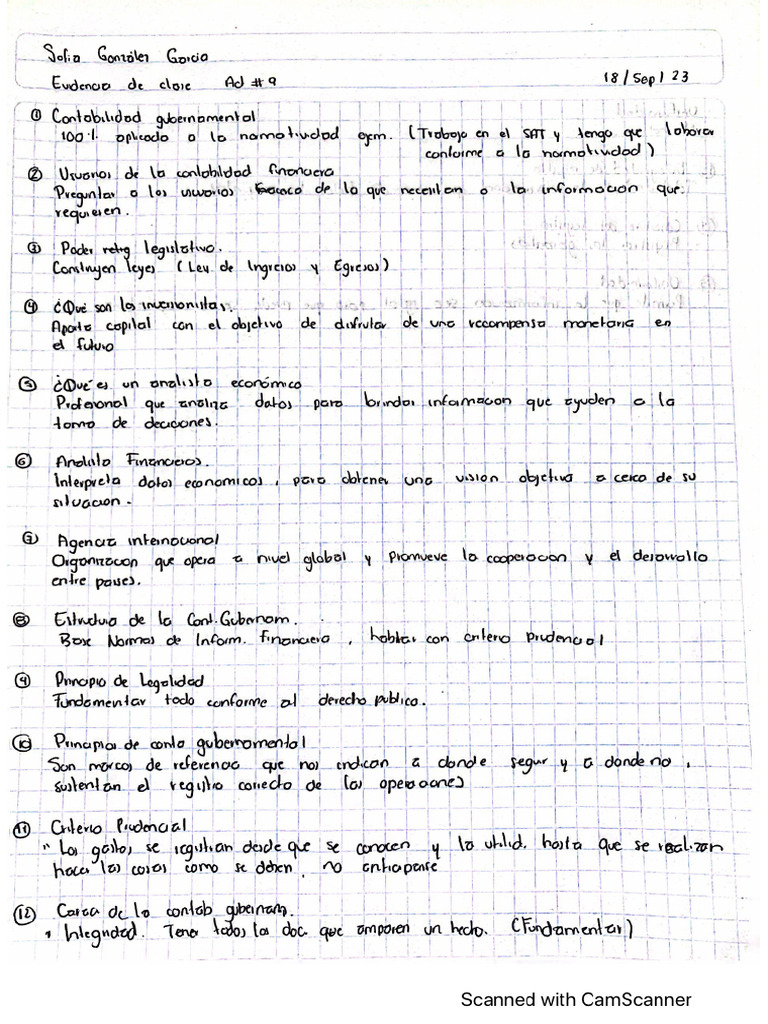 Sofia González García
Evidencia de clase Act # 9 18/Sep/23
① Contabilidad gubernamental
100% aplicado a la normatividad ejem. (Trabajo en el SAT y tengo que laborar
conforme a la normatividad)
② Usuarios de la contabilidad financiera
Preguntar a los usuarios de lo que necesitan o la información que
requieren.
③ Poder legislativo.
Construyen leyes (Ley de Ingresos y Egresos)
④ ¿Qué son los inversionistas.
Aporta capital con el objetivo de disfrutar de una recompensa monetaria en
el futuro
⑤ ¿Qué es un analista económico
Profesional que analiza datos para brindar informacion que ayuden a la
toma de decisiones.
⑥ Analista Financieros.
Interpreta datos economicos, para obtener una vision objetiva a cerca de su
situacion.
⑦ Agencia internacional
Organizacion que opera a nivel global y promueve la cooperacion y el desarrollo
entre paises.
⑧ Estructura de la Cont. Gubernam.
Base Normas de Inform. financiera, hablar con criterio prudencial
⑨ Principio de Legalidad
Fundamentar todo conforme al derecho publico.
⑩ Principios de conta gubernamental
Son marcos de referencia que nos indican a donde seguir y a donde no,
sustentan el registro correcto de las operaciones
⑪ Criterio Prudencial
" Los gastos se registran desde que se conocen y la utilid. hasta que se realizan
hacer las cosas como se deben, no anticiparse
⑫ Carac de la contab gubernam.
• Integridad. Tener todos los doc. que amparen un hecho. (Fundamentar)
Scanned with CamScanner